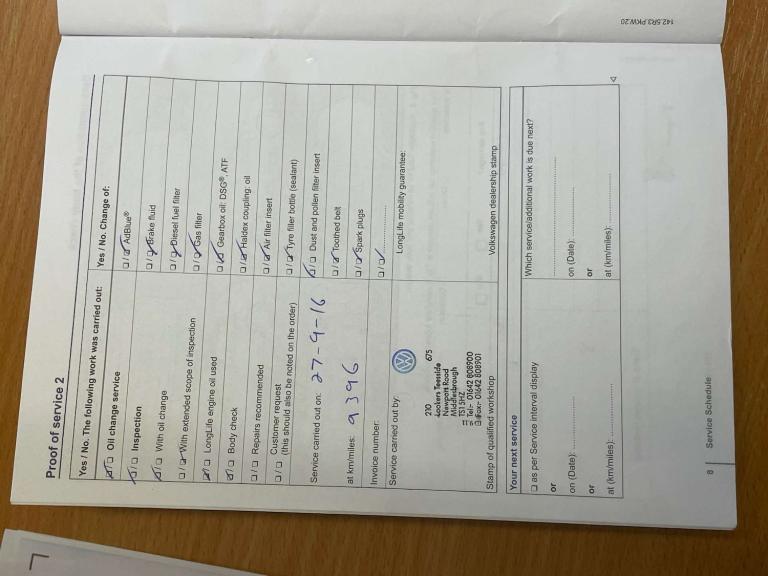 Proof of service 2
Yes / No. The following work was carried out:
☑/☐ Oil change service
☑/☐ Inspection
☑/☐ With oil change
☐/☑ With extended scope of inspection
☑/☐ LongLife engine oil used
☑/☐ Body check
☐/☐ Repairs recommended
☐/☐ Customer request
(this should also be noted on the order)
Service carried out on: 27-9-16
at km/miles: 9396
Invoice number:
Service carried out by:
210 675
Lookers Teesside
Newport Road
Middlesbrough
TS1 5HZ
Tel:- 01642 808900
Fax:- 01642 808901
Stamp of qualified workshop
Yes / No. Change of:
☐/☑ AdBlue®
☐/☑ Brake fluid
☐/☑ Diesel fuel filter
☐/☑ Gas filter
☐/☑ Gearbox oil: DSG®, ATF
☐/☑ Haldex coupling: oil
☐/☑ Air filter insert
☐/☑ Tyre filler bottle (sealant)
☑/☐ Dust and pollen filter insert
☐/☑ Toothed belt
☐/☑ Spark plugs
☐/☑ ....................
LongLife mobility guarantee:
Volkswagen dealership stamp
Your next service
☐ as per Service interval display
or
on (Date): ....................
or
at (km/miles): ....................
Which service/additional work is due next?
....................
on (Date): ....................
or
at (km/miles): ....................
8 | Service Schedule
142.5R3.PKW.20